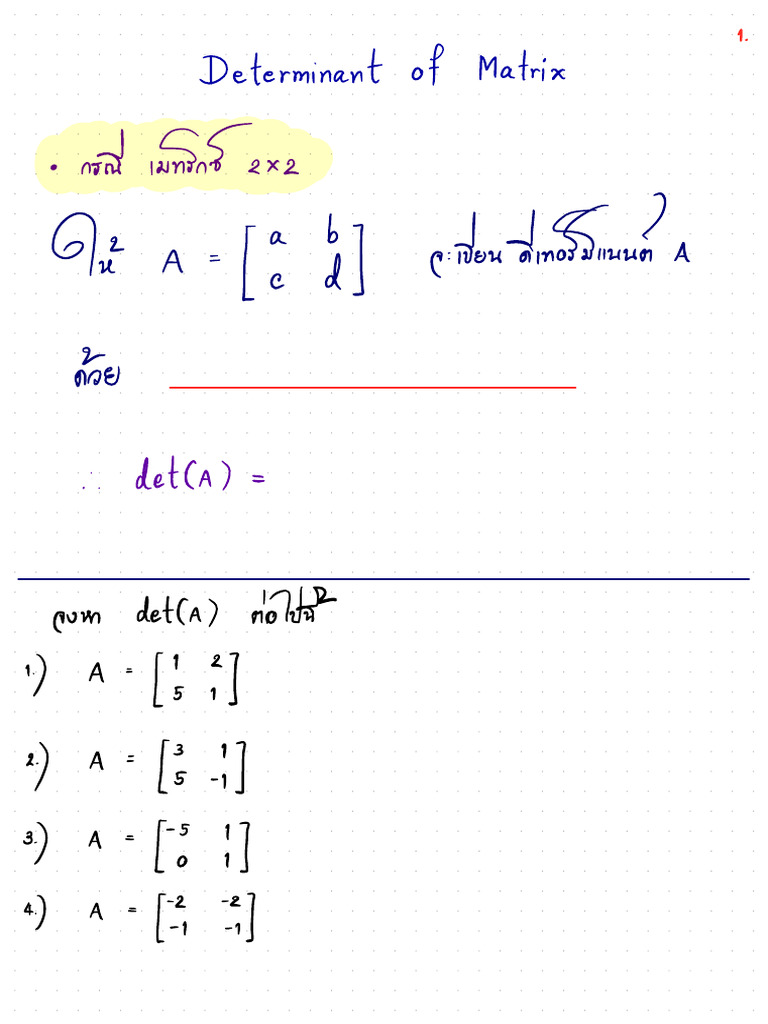 1.
Determinant of Matrix
• กรณี เมทริกซ์ 2×2
ให้ A = [a b
c d] จะเขียน ดีเทอร์มิแนนต์ A
ด้วย
∴ det(A) =
จงหา det(A) ต่อไปนี้
1.) A = [1 2
5 1]
2.) A = [3 1
5 -1]
3.) A = [-5 1
0 1]
4.) A = [-2 -2
-1 -1]